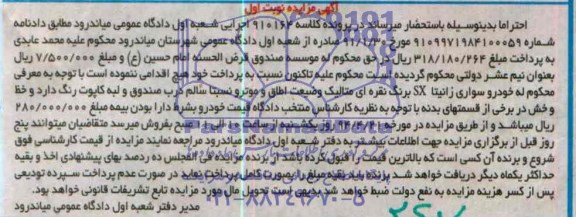 آگهی مزایده نوبت اول
احتراما بدینوسیله باستحضار میرساند در پرونده کلاسه 910164 اجرایی شعبه اول دادگاه عمومی میاندرود مطابق دادنامه
شماره 9109971984100059 مورخ صادره از شعبه اول دادگاه عمومی شهرستان میاندرود محکوم علیه محمد عابدی
به پرداخت مبلغ 318/180/264 ریال در حق محکوم له موسسه صندوق قرض الحسنه امام حسین (ع) و مبلغ 7/500/000 ریال
بعنوان نیم عشر دولتی محکوم گردیده است محکوم علیه تاکنون نسبت به پرداخت خود هیچ اقدامی ننموده است با توجه به معرفی
محکوم له خودرو سواری زانتیا SX برنگ نقره ای متالیک وضعیت اطاق و موتور نسبتا سالم درب صندوق و لبه کاپوت رنگ دارد و خط
و خش در برخی از قسمتهای بدنه با توجه به نظریه کارشناس منتخب دادگاه قیمت خودرو بشرط دارا بودن بیمه مبلغ 280/000/000
ریال میباشد و از طریق مزایده در مورخ روز یکشنبه از ساعت الی صبح بفروش میرسد متقاضیان میتوانند پنج
روز قبل از برگزاری مزایده جهت اطلاعات بیشتر به دفتر شعبه اول دادگاه میاندرود مراجعه نمایند مزایده از قیمت کارشناسی فوق
شروع و برنده آن کسی است که بالاترین قیمت را قبول کرده باشد از برنده مزایده فی المجلس ده درصد بهای پیشنهادی اخذ و بقیه
حداکثر یکماه دیگر دریافت خواهد شد برنده باید بقیه مبلغ را بصورت کامل پرداخت نماید در صورت عدم پرداخت سپرده تودیعی
پس از کسر هزینه مزایده به نفع دولت ضبط خواهد شد بدیهی است تحویل مال مورد مزایده تابع تشریفات قانونی خواهد بود.
مدیر دفتر شعبه اول دادگاه عمومی میاندرود
021-88349670-5